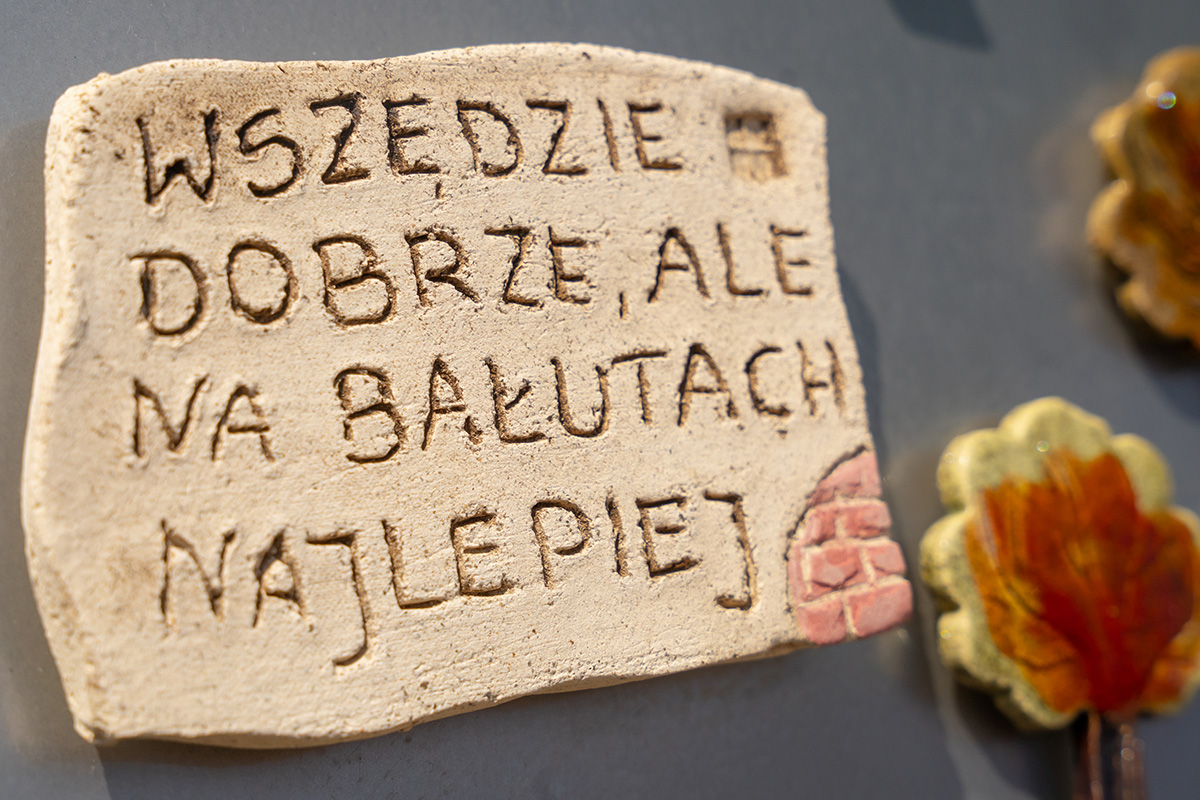 WSZĘDZIE
DOBRZE, ALE
NA BAŁUTACH
NAJLEPIEJ